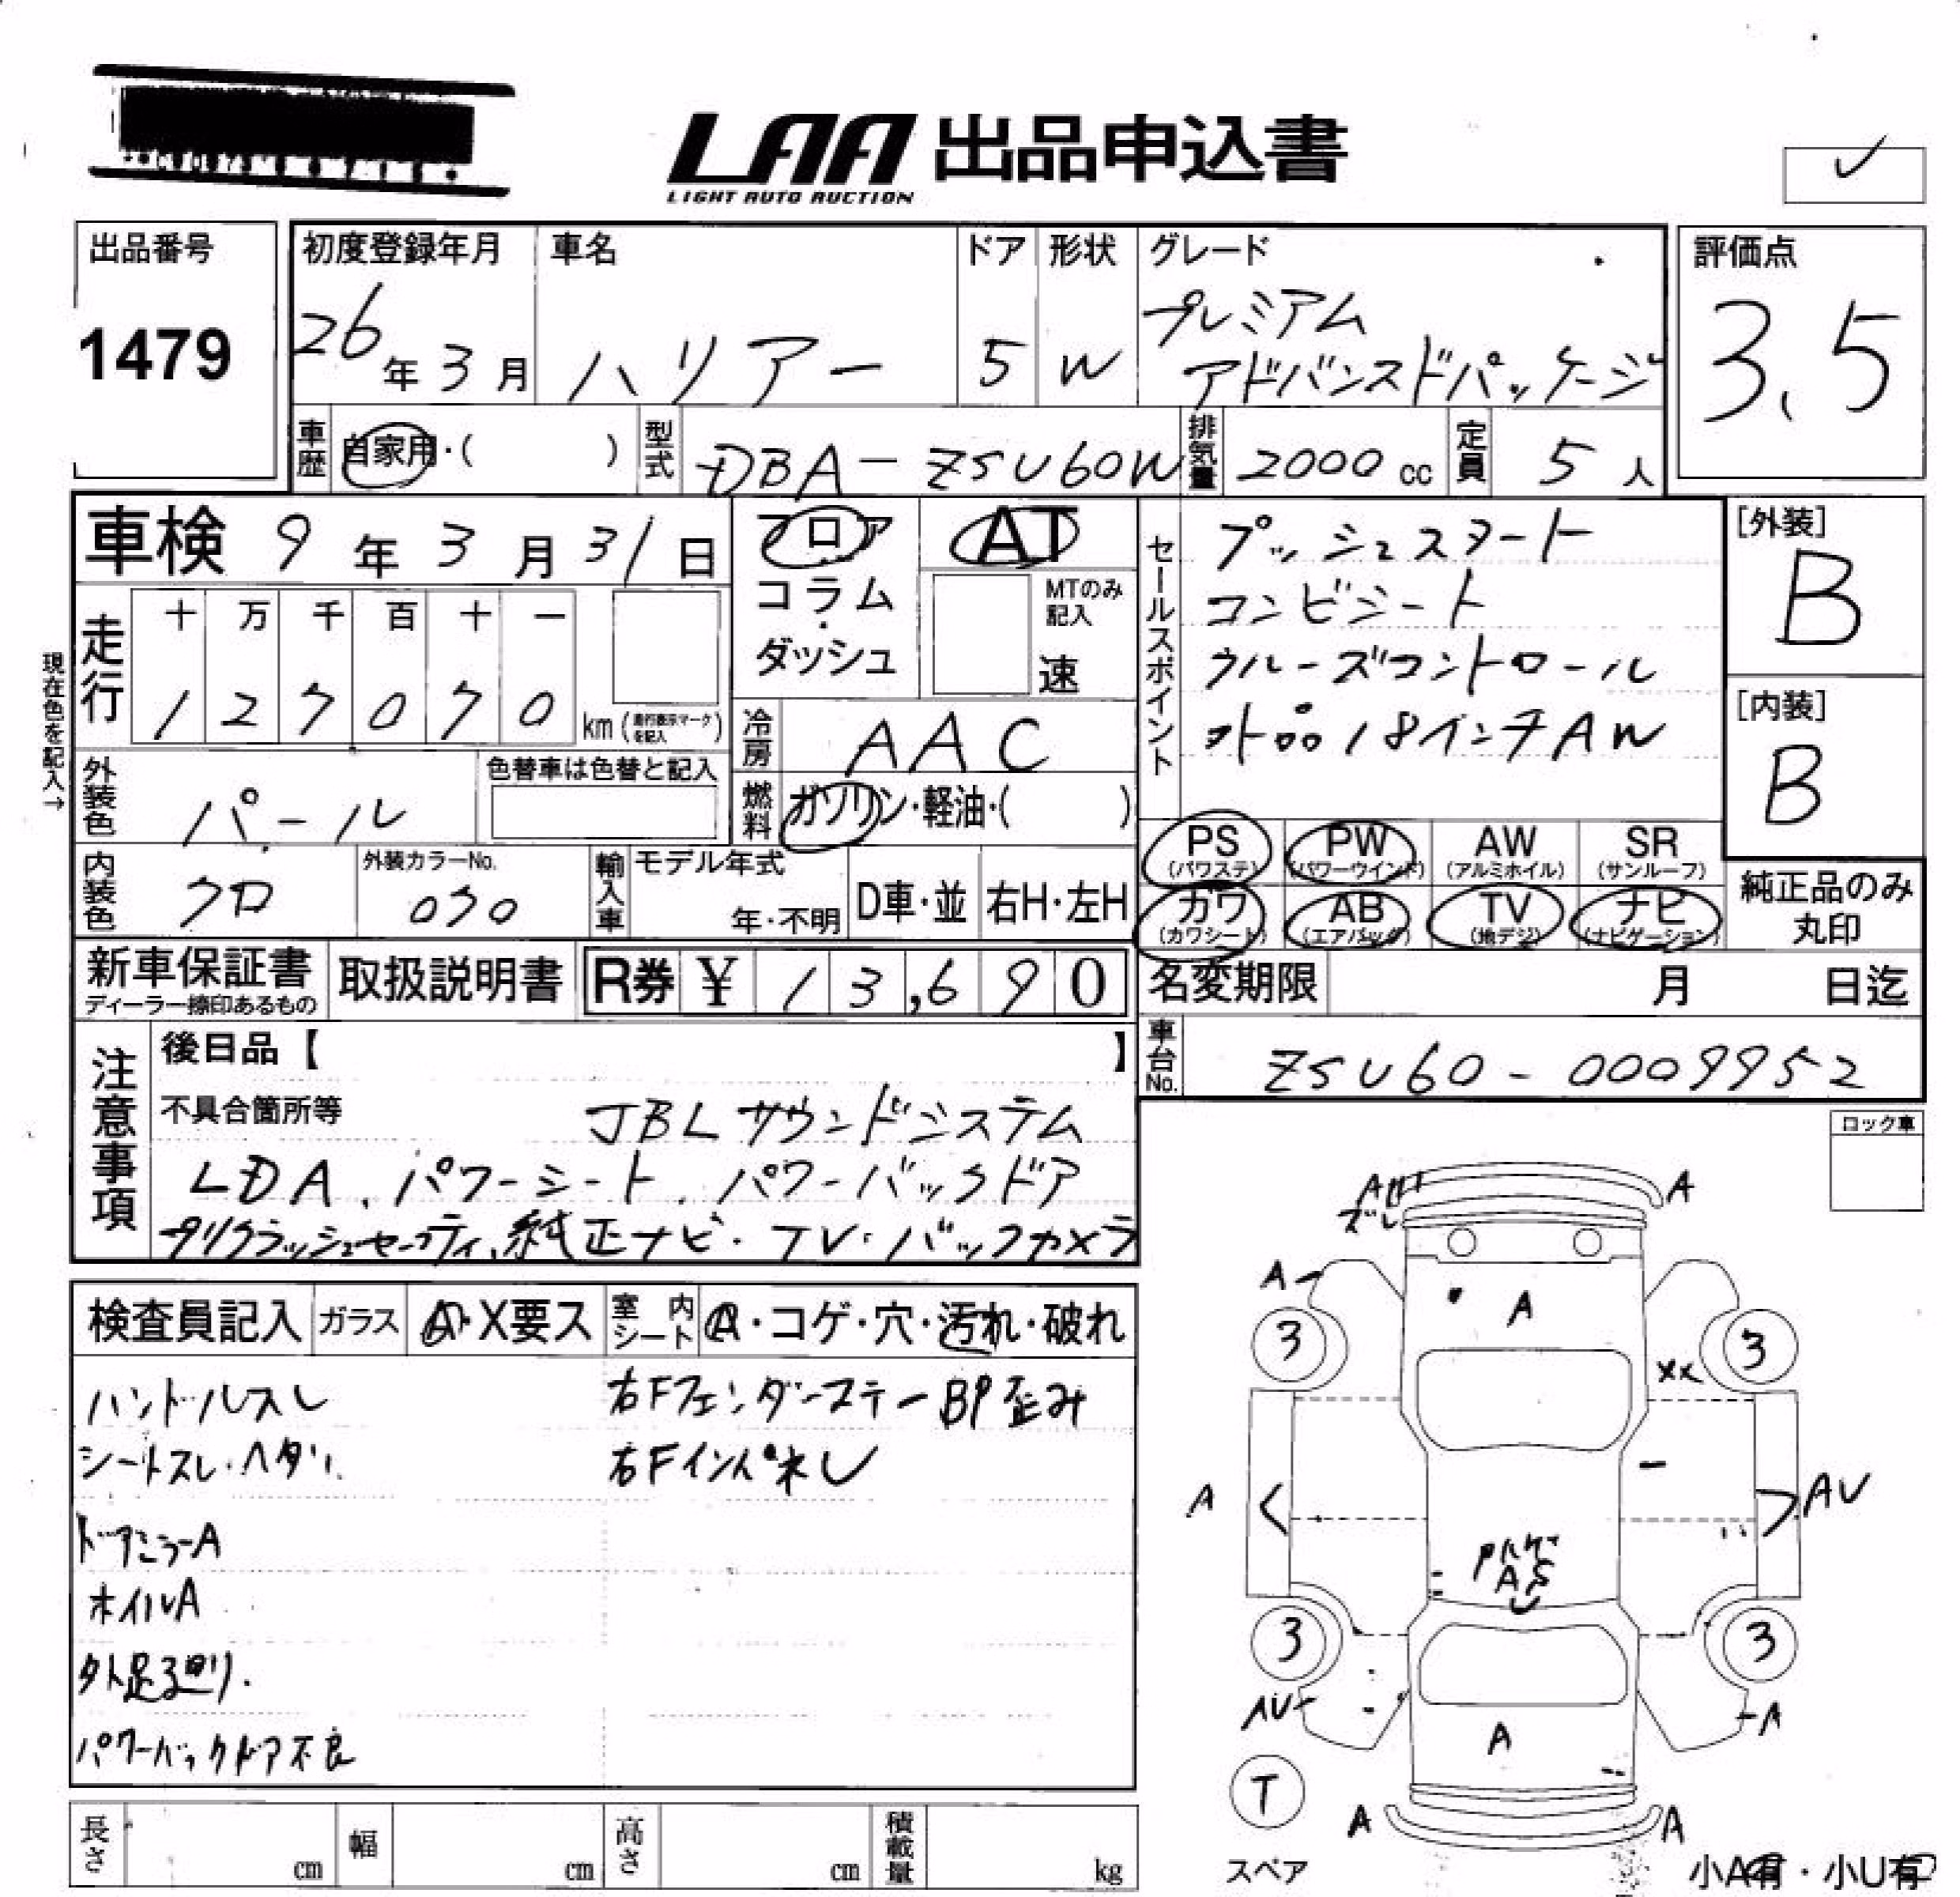 LAA 出品申込書
LIGHT AUTO AUCTION
✓
出品番号
1479
初度登録年月
26年3月
車名
ハリアー
ドア
5
形状
W
グレード
プレミアム
アドバンスドパッケージ
評価点
3.5
車歴
自家用・( )
型式
DBA-ZSU60W
排気量
2000cc
定員
5人
車検 9年3月31日
フロア
・
コラム
・
ダッシュ
AT
MTのみ記入
速
現在色を記入→
走行
十 万 千 百 十 一
1 2 7 0 7 0 km (走行表示マークを記入)
冷房
AAC
燃料
ガソリン・軽油・( )
外装色
パール
色替車は色替と記入
内装色
クロ
外装カラーNo.
070
輸入車
モデル年式
年・不明
D車・並
右H・左H
セールスポイント
プッシュスタート
コンビシート
クルーズコントロール
外品18インチAW
[外装]
B
[内装]
B
PS (パワステ)
PW (パワーウインド)
AW (アルミホイル)
SR (サンルーフ)
カワ (カワシート)
AB (エアバック)
TV (地デジ)
ナビ (ナビゲーション)
純正品のみ
丸印
新車保証書
ディーラー捺印あるもの
取扱説明書
R券 ¥ 13,690
名変期限 月 日迄
車台No.
ZSU60-0009952
注意事項
後日品【 】
不具合箇所等
JBLサウンドシステム
LDA、パワーシート、パワーバックドア
プリクラッシュセーフティ、純正ナビ・TV・バックカメラ
ロック車
検査員記入
ガラス
A・X要ス
室内シート
A・コゲ・穴・汚れ・破れ
ハンドルスレ
シートスレ・ヘタリ、
ドアミラーA
ホイルA
外足廻り.
パワーバックドア不良
右FフェンダーステーBP歪み
右Fインパネし
A
ズレ
A
A
A
3
3
XX
A
AU
アルゲ
AS
U
3
3
AU
A
A
T
スペア
A
A
小A有・小U有
長さ cm
幅 cm
高さ cm
積載量 kg